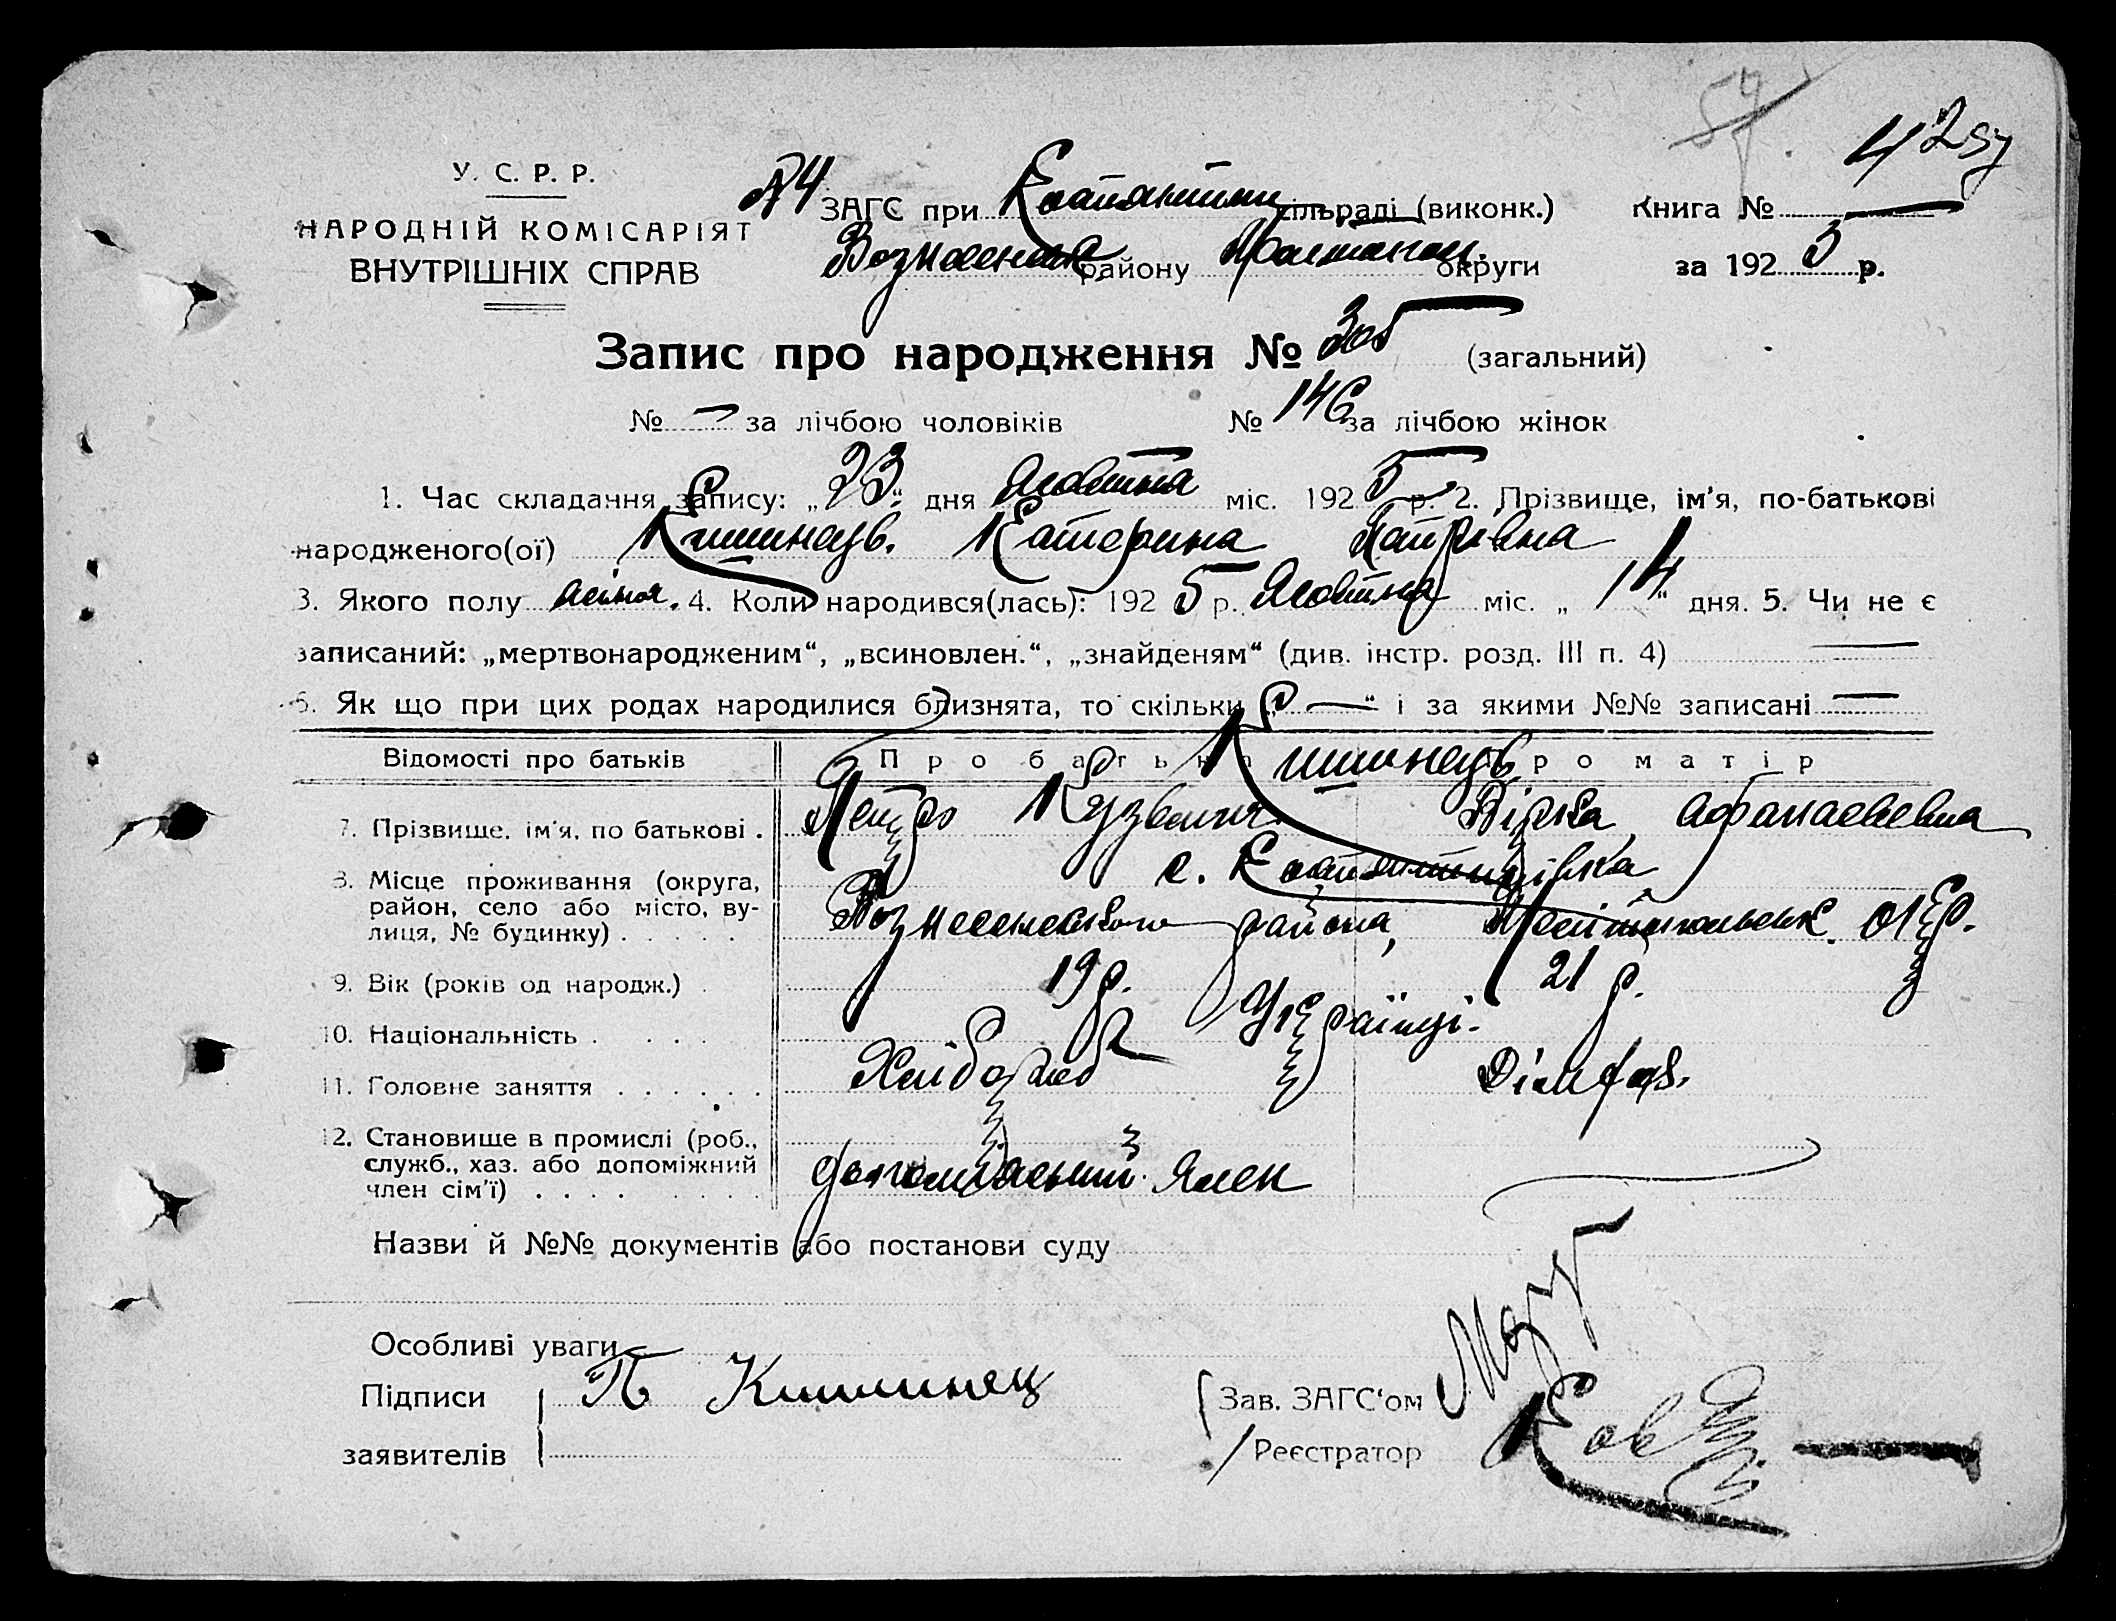 57
42 57
У. С. Р. Р.
НАРОДНІЙ КОМІСАРІЯТ
ВНУТРІШНІХ СПРАВ
ЗАГС при Костянтин сільраді (виконк.) Книга №
Вознесенськ району округи за 192 5 р.
Запис про народження № 305 (загальний)
№ — за лічбою чоловіків № 146 за лічбою жінок
1. Час складання запису: „ 23 “ дня Жовтня міс. 192 5 р. 2. Прізвище, ім'я, по-батькові
народженого(ої) Кишинець. Катерина Петрівна
3. Якого полу жіноч. 4. Коли народився(лась): 192 5 р. Жовтня міс. „ 14 “ дня. 5. Чи не є
записаний: „мертвонародженим“, „всиновлен.“, „знайденям“ (див. інстр. розд. III п. 4) —
6. Як що при цих родах народилися близнята, то скільки „ — “ і за якими №№ записані —
Відомості про батьків Про батька Про матір
Кишинець
7. Прізвище, ім'я, по батькові . Петро Кузьмич Вірка Афанасьевна
8. Місце проживання (округа, район, село або місто, вулиця, № будинку) . . . . .
с. Костянтинівка
Вознесенського района, окр.
9. Вік (років од народж.) . 19 р. 21 р.
10. Національність . . . . Українці.
11. Головне заняття . . . . . . Хлібороб
12. Становище в промислі (роб.,
служб., хаз. або допоміжний
член сім'ї) . . . . допоміжний член
Назви й №№ документів або постанови суду
Особливі уваги
Підписи П Кишинец Зав. ЗАГС'ом
заявителів Реєстратор